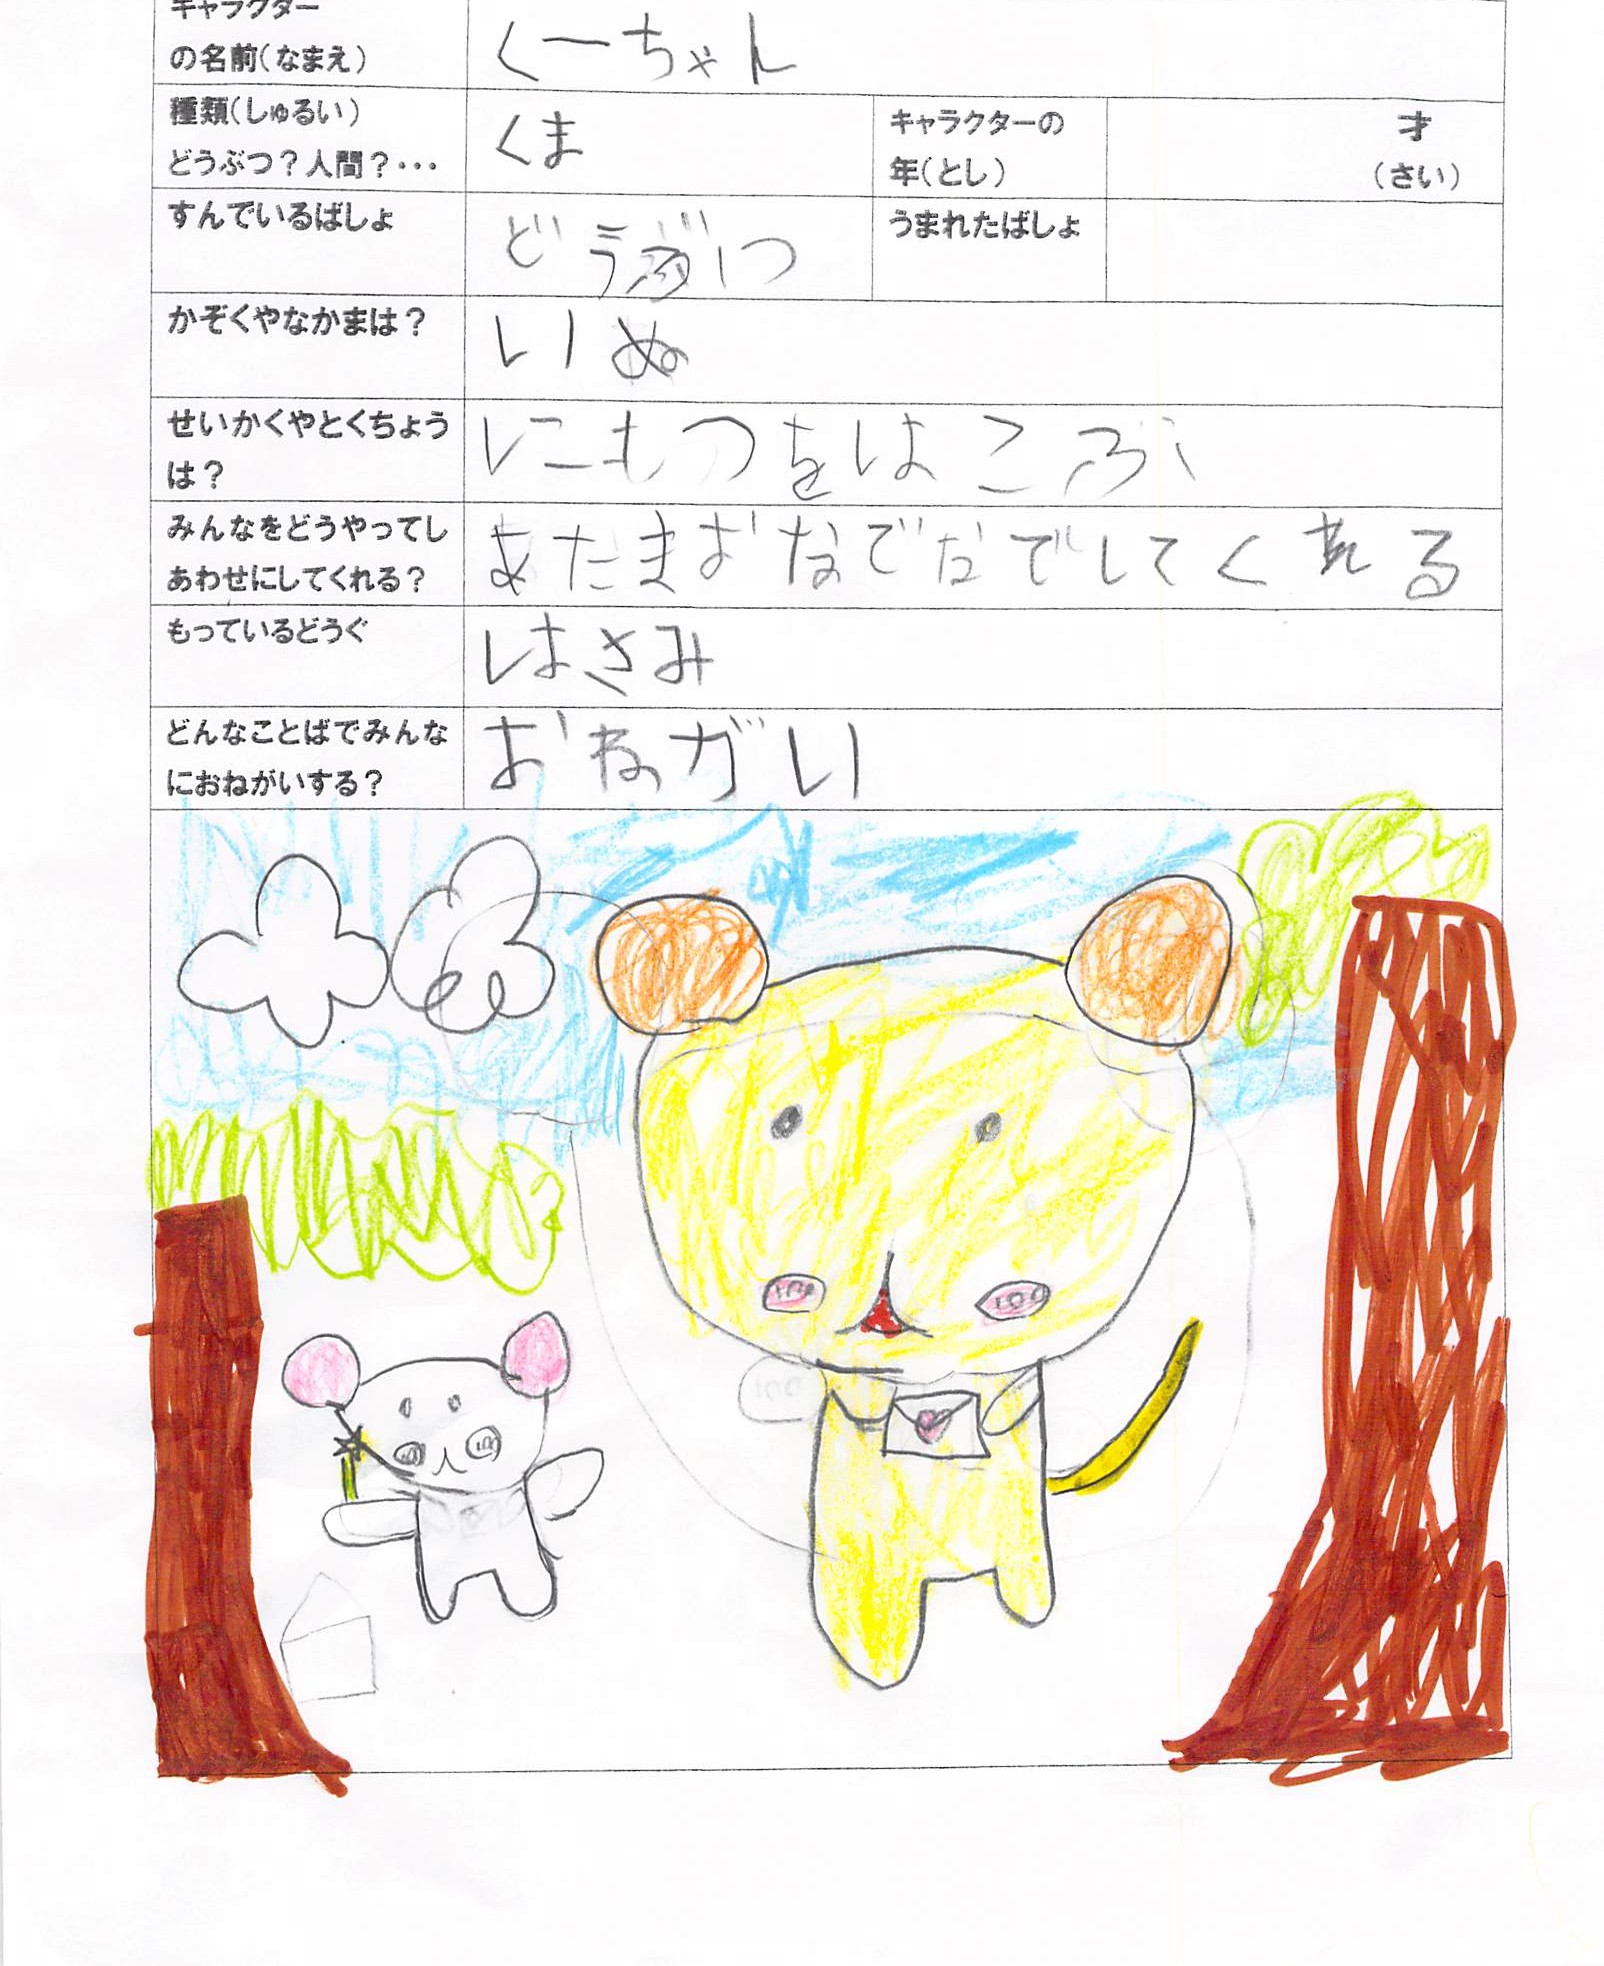 キャラクター
の名前(なまえ)
くーちゃん
種類(しゅるい)
どうぶつ?人間?・・・
くま
キャラクターの
年(とし)
才
(さい)
すんでいるばしょ
どうぶつ
うまれたばしょ
かぞくやなかまは?
いぬ
せいかくやとくちょう
は?
にもつをはこぶ
みんなをどうやってし
あわせにしてくれる?
あたまおなでなでしてくれる
もっているどうぐ
はさみ
どんなことばでみんな
におねがいする?
おねがい